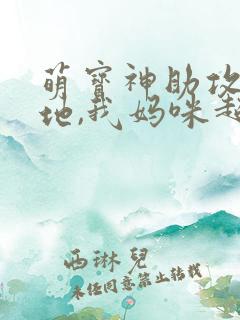 萌宝神助攻
地,我妈咪超
西琳儿
未经同意禁止转载